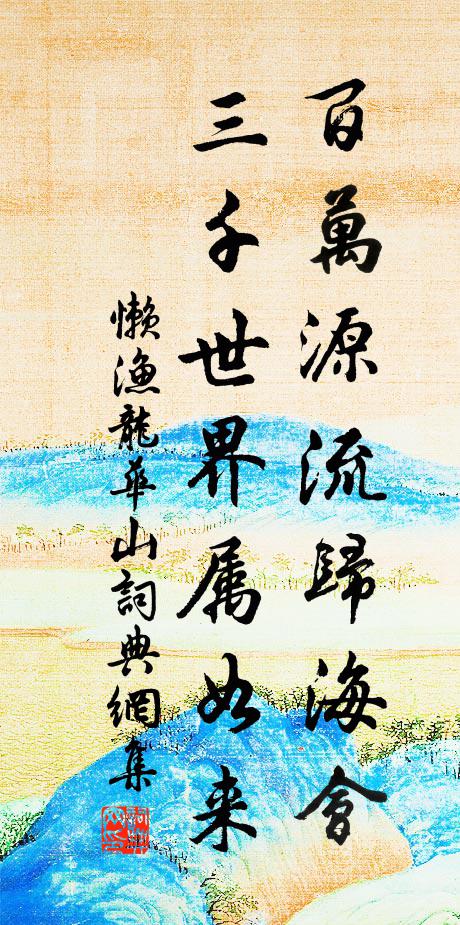 百萬源流歸海會
三千世界属如来
懒渔龍華山詞典網集